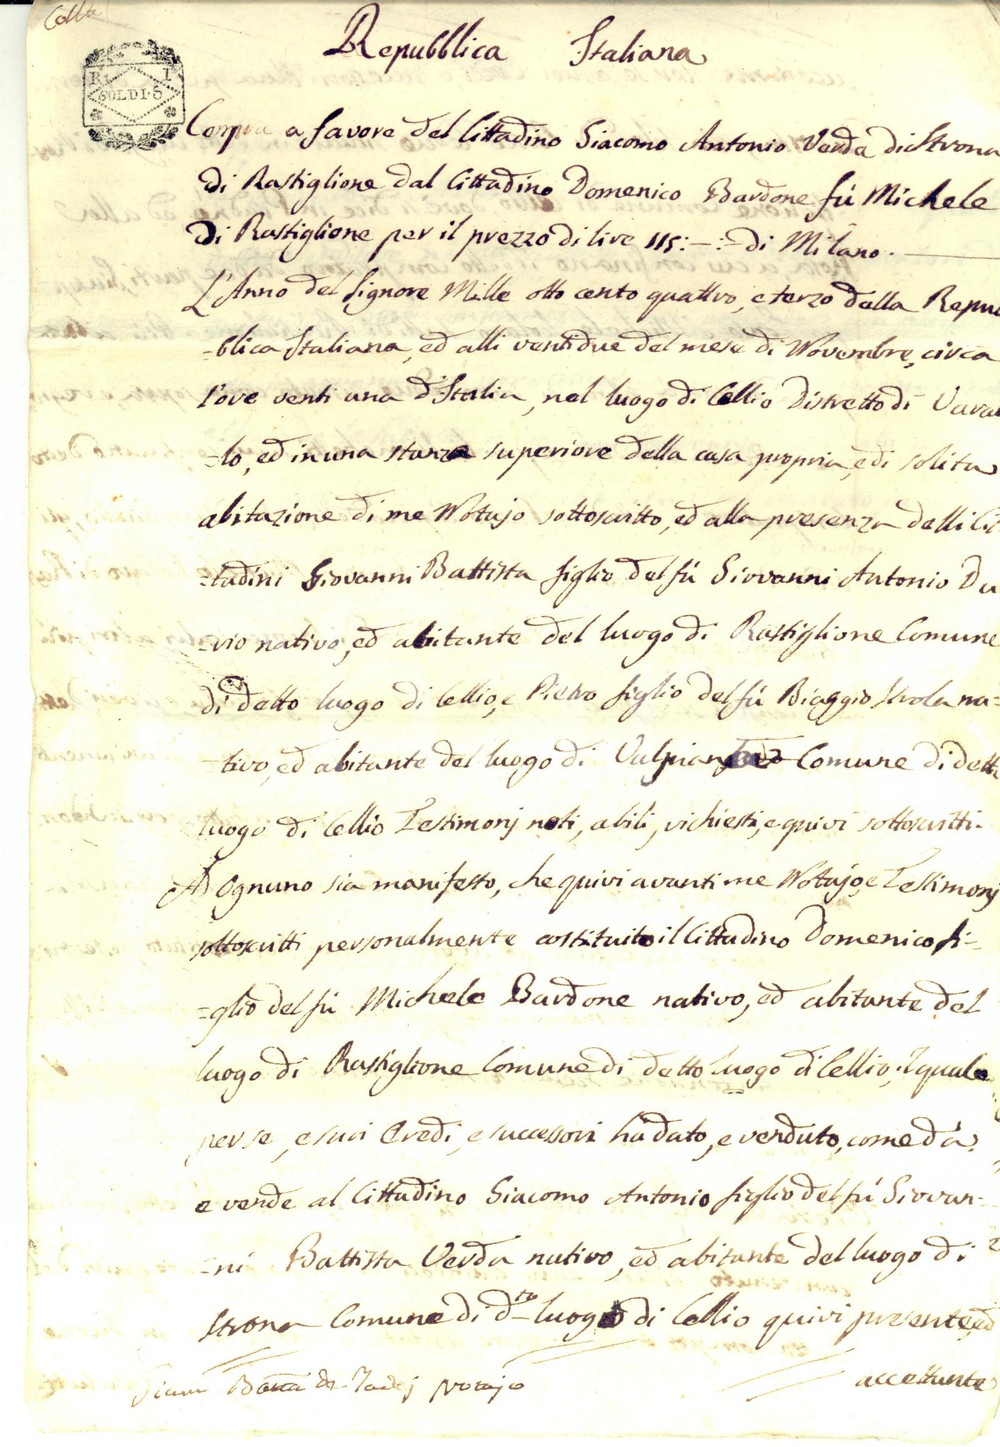 Colla
Repubblica Italiana
R. I
SOLDI. 5
Compra a favore del Cittadino Giacomo Antonio Verda di Strona
di Rastiglione dal Cittadino Domenico Bardone fú Michele
di Rastiglione per il prezzo di lire 115:—:— di Milano.
L'Anno del Signore Mille otto cento quattro, e terzo della Repu
=blica Italiana, ed alli ventidue del mese di Novembre, circa
l'ore venti una d'Italia, nel luogo di Cellio Distretto di Vara
=lo, ed in una stanza superiore della casa propria, e di solita
abitazione di me Notajo sottoscritto, ed alla presenza delli Cit
=tadini Giovanni Battista figlio del fú Giovanni Antonio Du
=rio nativo, ed abitante del luogo di Rastiglione Comune
di detto luogo di Cellio, e Pietro figlio del fú Biaggio Strola na=
tivo, ed abitante del luogo di Comune di detto
luogo di Cellio Testimonj noti, abili, richiesti, e quivi sottoscritti.
Ad Ognuno sia manifesto, che quivi avanti me Notajo, e Testimonj
sottoscritti personalmente costituito il Cittadino Domenico fi=
=glio del fú Michele Bardone nativo, ed abitante del
luogo di Rastiglione Comune di detto luogo di Cellio, Il quale
per se, e suoi Eredi, e successori há dato, e venduto, come dá,
e vende al Cittadino Giacomo Antonio figlio del fú Giovan=
=ni Battista Verda nativo, ed abitante del luogo di
Strona Comune di d.to luogo di Cellio quivi presente, ed
accettante
Notajo